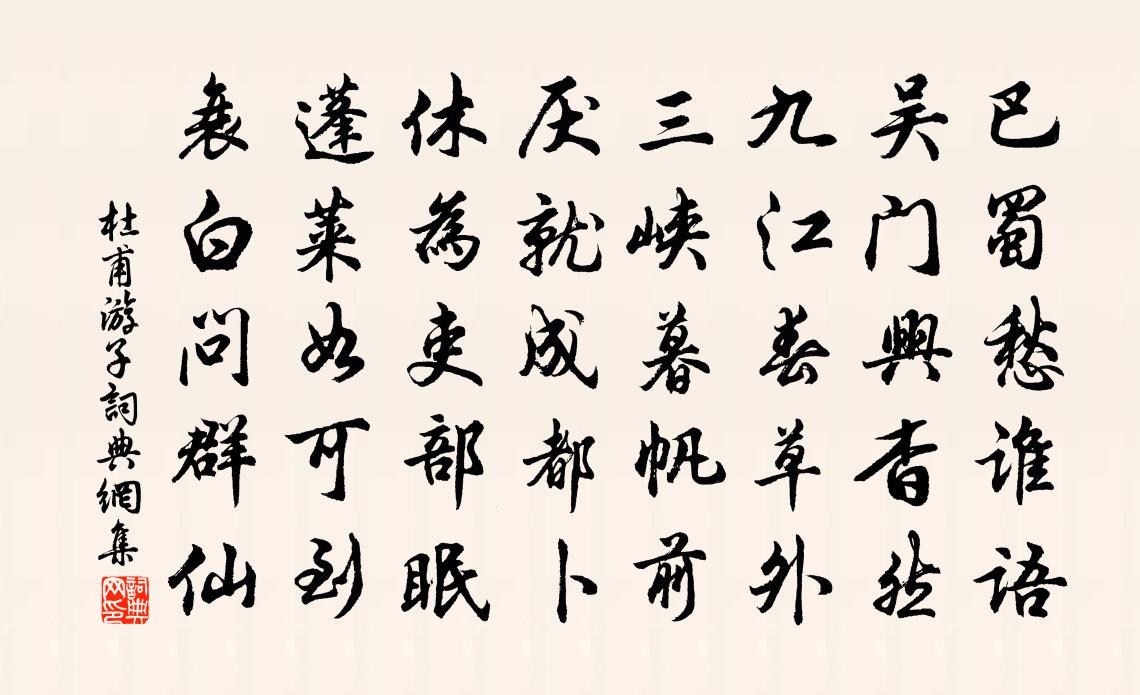 巴蜀愁谁语
吴门興杳然
九江春草外
三峡暮帆前
厌就成都卜
休為吏部眠
蓬莱如可到
衰白问群仙
杜甫游子詞典網集
詞典网印